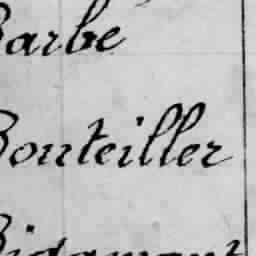 Barbe
Bouteiller